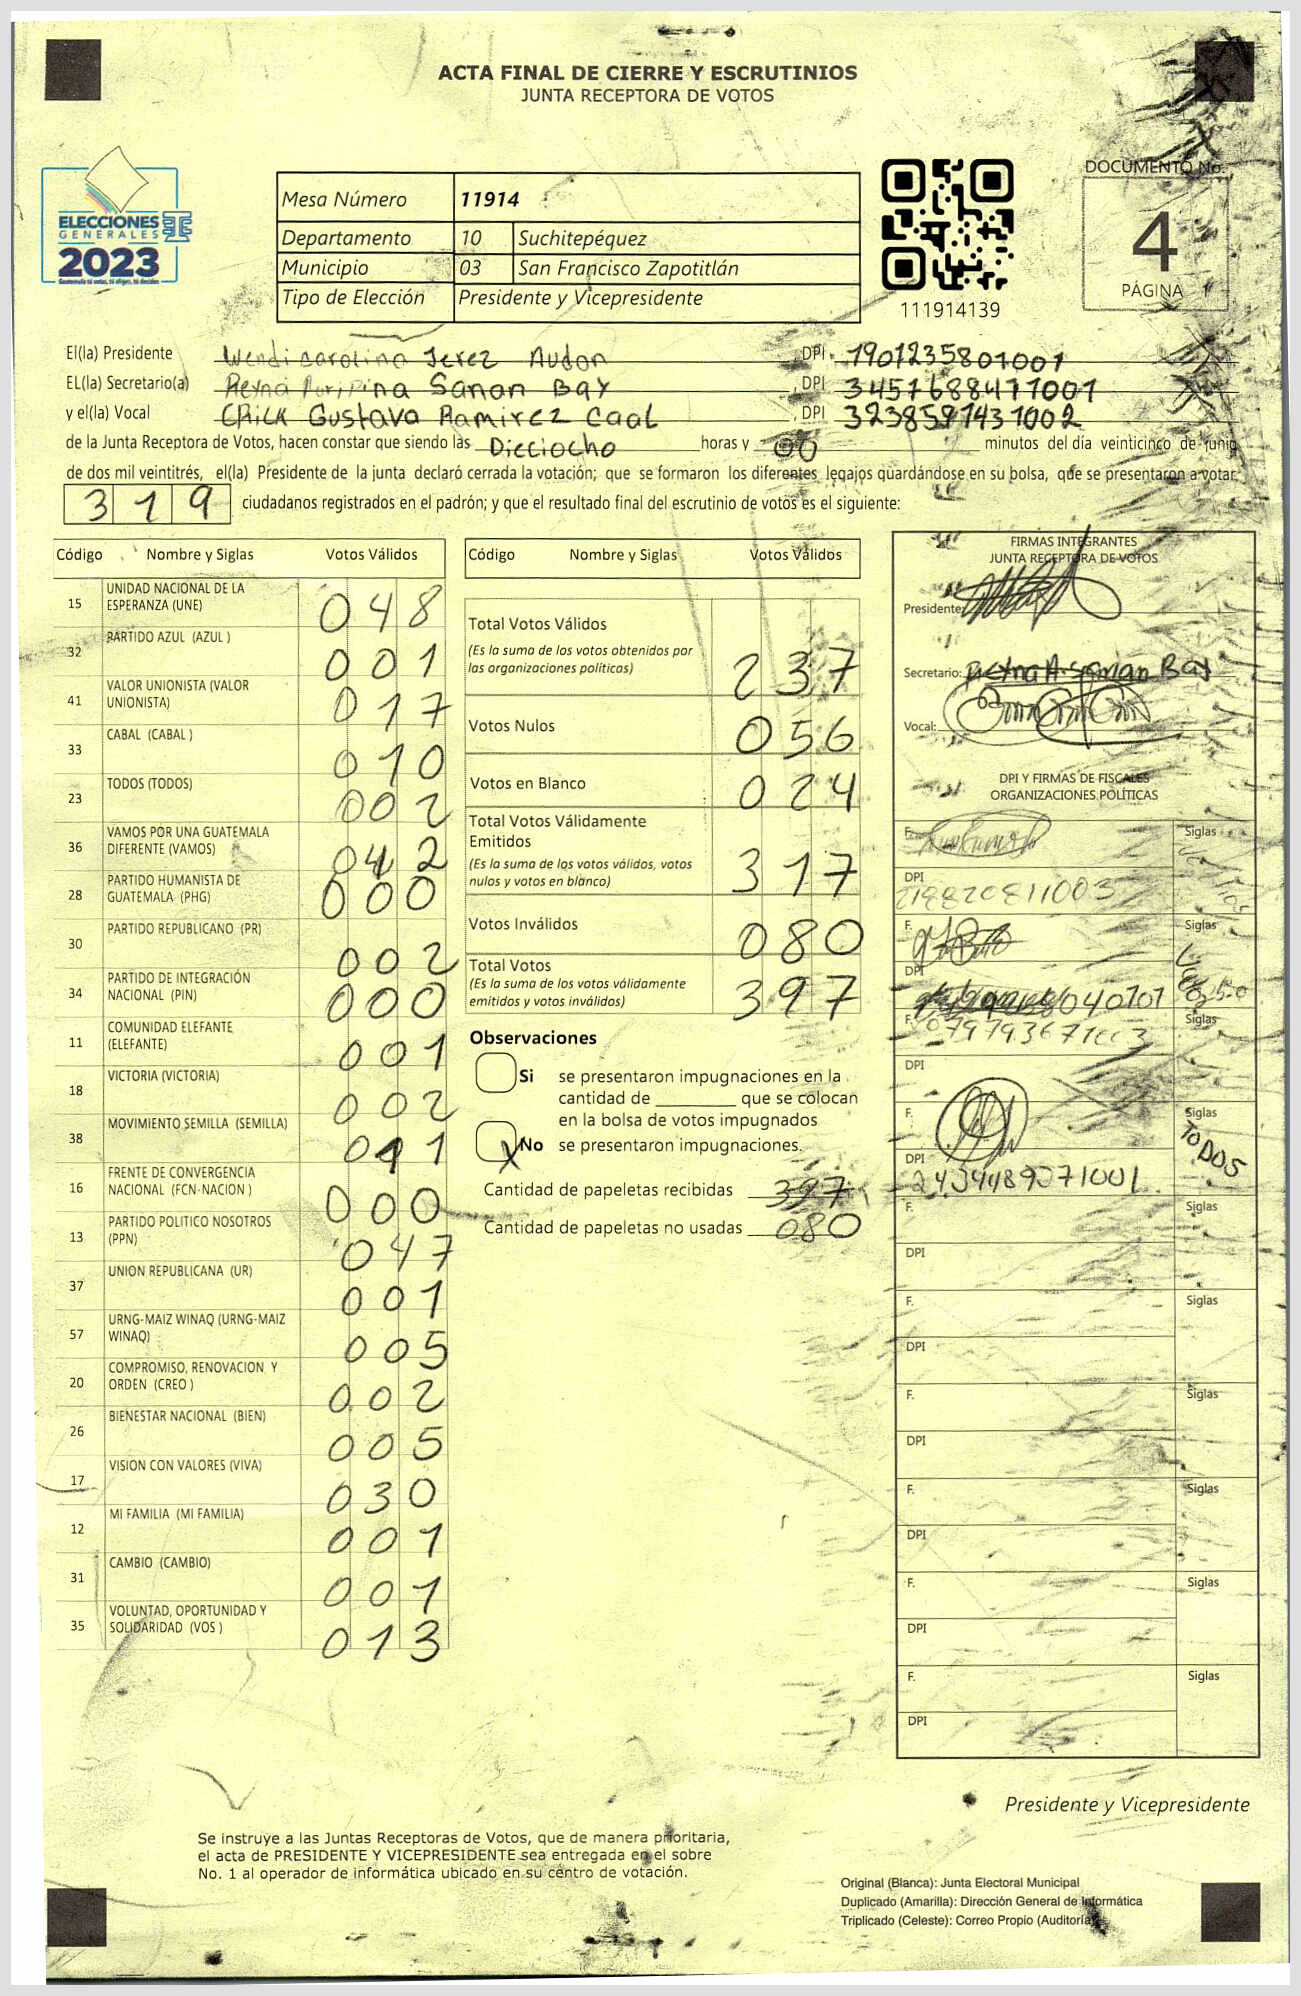 ACTA FINAL DE CIERRE Y ESCRUTINIOS
JUNTA RECEPTORA DE VOTOS
ELECCIONES
GENERALES
2023
Guatemala tú votas, tú eliges, tú decides
Mesa Número 11914
Departamento 10 Suchitepéquez
Municipio 03 San Francisco Zapotitlán
Tipo de Elección Presidente y Vicepresidente
111914139
DOCUMENTO No.
4
PÁGINA 1
El(la) Presidente Wendi carolina Jerez Audon , DPI 1901235801001
EL(la) Secretario(a) Reyna Sanan Bay , DPI 3451688411001
y el(la) Vocal Erick Gustavo Ramirez Caal , DPI 3238591431002
de la Junta Receptora de Votos, hacen constar que siendo las Dieciocho horas y 00 minutos del día veinticinco de junio
de dos mil veintitrés, el(la) Presidente de la junta declaró cerrada la votación; que se formaron los diferentes legajos guardándose en su bolsa, que se presentaron a votar
319 ciudadanos registrados en el padrón; y que el resultado final del escrutinio de votos es el siguiente:
Código Nombre y Siglas Votos Válidos
15 UNIDAD NACIONAL DE LA ESPERANZA (UNE) 048
32 PARTIDO AZUL (AZUL ) 001
41 VALOR UNIONISTA (VALOR UNIONISTA) 017
33 CABAL (CABAL ) 010
23 TODOS (TODOS) 002
36 VAMOS POR UNA GUATEMALA DIFERENTE (VAMOS) 042
28 PARTIDO HUMANISTA DE GUATEMALA (PHG) 000
30 PARTIDO REPUBLICANO (PR) 002
34 PARTIDO DE INTEGRACIÓN NACIONAL (PIN) 000
11 COMUNIDAD ELEFANTE (ELEFANTE) 001
18 VICTORIA (VICTORIA) 002
38 MOVIMIENTO SEMILLA (SEMILLA) 011
16 FRENTE DE CONVERGENCIA NACIONAL (FCN-NACION ) 000
13 PARTIDO POLITICO NOSOTROS (PPN) 047
37 UNION REPUBLICANA (UR) 001
57 URNG-MAIZ WINAQ (URNG-MAIZ WINAQ) 005
20 COMPROMISO, RENOVACION Y ORDEN (CREO ) 002
26 BIENESTAR NACIONAL (BIEN) 005
17 VISION CON VALORES (VIVA) 030
12 MI FAMILIA (MI FAMILIA) 001
31 CAMBIO (CAMBIO) 001
35 VOLUNTAD, OPORTUNIDAD Y SOLIDARIDAD (VOS ) 013
Código Nombre y Siglas Votos Válidos
Total Votos Válidos
(Es la suma de los votos obtenidos por
las organizaciones políticas) 237
Votos Nulos 056
Votos en Blanco 024
Total Votos Válidamente
Emitidos
(Es la suma de los votos válidos, votos
nulos y votos en blanco) 317
Votos Inválidos 080
Total Votos
(Es la suma de los votos válidamente
emitidos y votos inválidos) 397
Observaciones
Si se presentaron impugnaciones en la
cantidad de que se colocan
en la bolsa de votos impugnados
X No se presentaron impugnaciones.
Cantidad de papeletas recibidas 397
Cantidad de papeletas no usadas 080
FIRMAS INTEGRANTES
JUNTA RECEPTORA DE VOTOS
Presidente:
Secretario: Reyna A. Sanan Bay
Vocal:
DPI Y FIRMAS DE FISCALES
ORGANIZACIONES POLÍTICAS
F. Siglas
DPI
F. Siglas
DPI 040101
F. Siglas
DPI
F. Siglas
DPI 2434489271001 TODOS
F. Siglas
DPI
F. Siglas
DPI
F. Siglas
DPI
F. Siglas
DPI
F. Siglas
DPI
F. Siglas
DPI
Presidente y Vicepresidente
Se instruye a las Juntas Receptoras de Votos, que de manera prioritaria,
el acta de PRESIDENTE Y VICEPRESIDENTE sea entregada en el sobre
No. 1 al operador de informática ubicado en su centro de votación.
Original (Blanca): Junta Electoral Municipal
Duplicado (Amarilla): Dirección General de Informática
Triplicado (Celeste): Correo Propio (Auditoría)